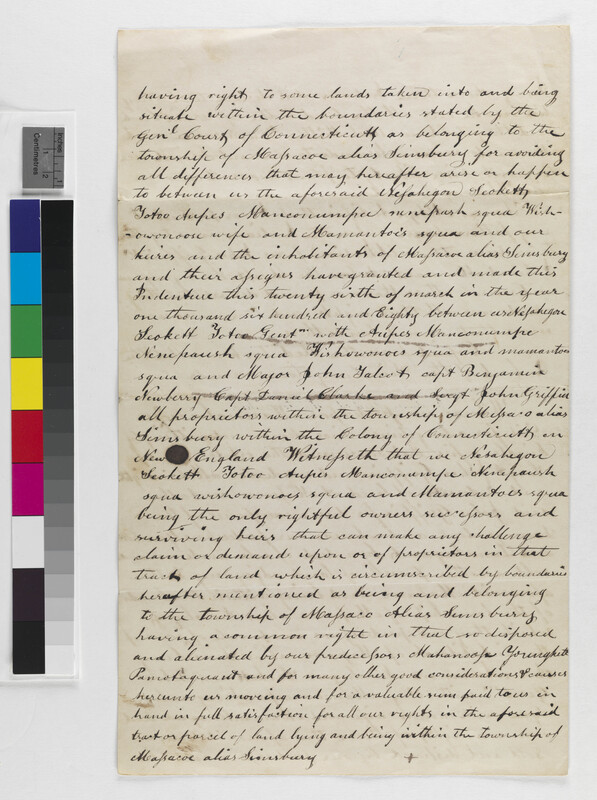 having right to some lands taken into and being
situate within the boundaries stated by the
Genl Court of Connecticutt as belonging to the
township of Massacoe alias Simsbury for avoiding
all differences that may hereafter arise or happen
to between us the aforesaid Nesahegon Seckett
Totoe Aupes Manconumpee sunepash squa Wish-
owonoose wife and Mamantois squa and our
heires and the inhabitants of Massacoe alias Simsbury
and their assigns have granted and made this
Indenture this twenty sixth of march in the year
one thousand six hundred and Eighty between us Nesahegon
Seokett Totoe Gentm with Aupes Manconumpe
Nenepaush squa Wishowonoes squa and mamantois
squa and Major John Talcot capt Benjamin
Newberry Capt Daniel Clarke and Sergt John Griffin
all proprietors within the township of Massaco alias
Simsbury within the Colony of Connecticutt in
New England Witnesseth that we Nesahegon
Seokett Totoe Aupes Manconumpe Nenepaush
squa wishowonoes squa and Mamantoes squa
being the only rightful owners successors and
surviving heirs that can make any challenge
claim or demand upon or of proprietors in that
tract of land which is circumscribed by boundaries
hereafter mentioned as being and belonging
to the township of Massaco Alias Simsbury
having a common right in that so disposed
and alienated by our predecessors Mahanoose Youngkett
Pamatagucant and for many other good considerations & causes
hereunto us moving and for a valuable sum paid to us in
hand in full satisfaction for all our rights in the aforesaid
tract or parcel of land lying and being within the township of
Massacoe alias Simsbury +
Inches
Centimetres